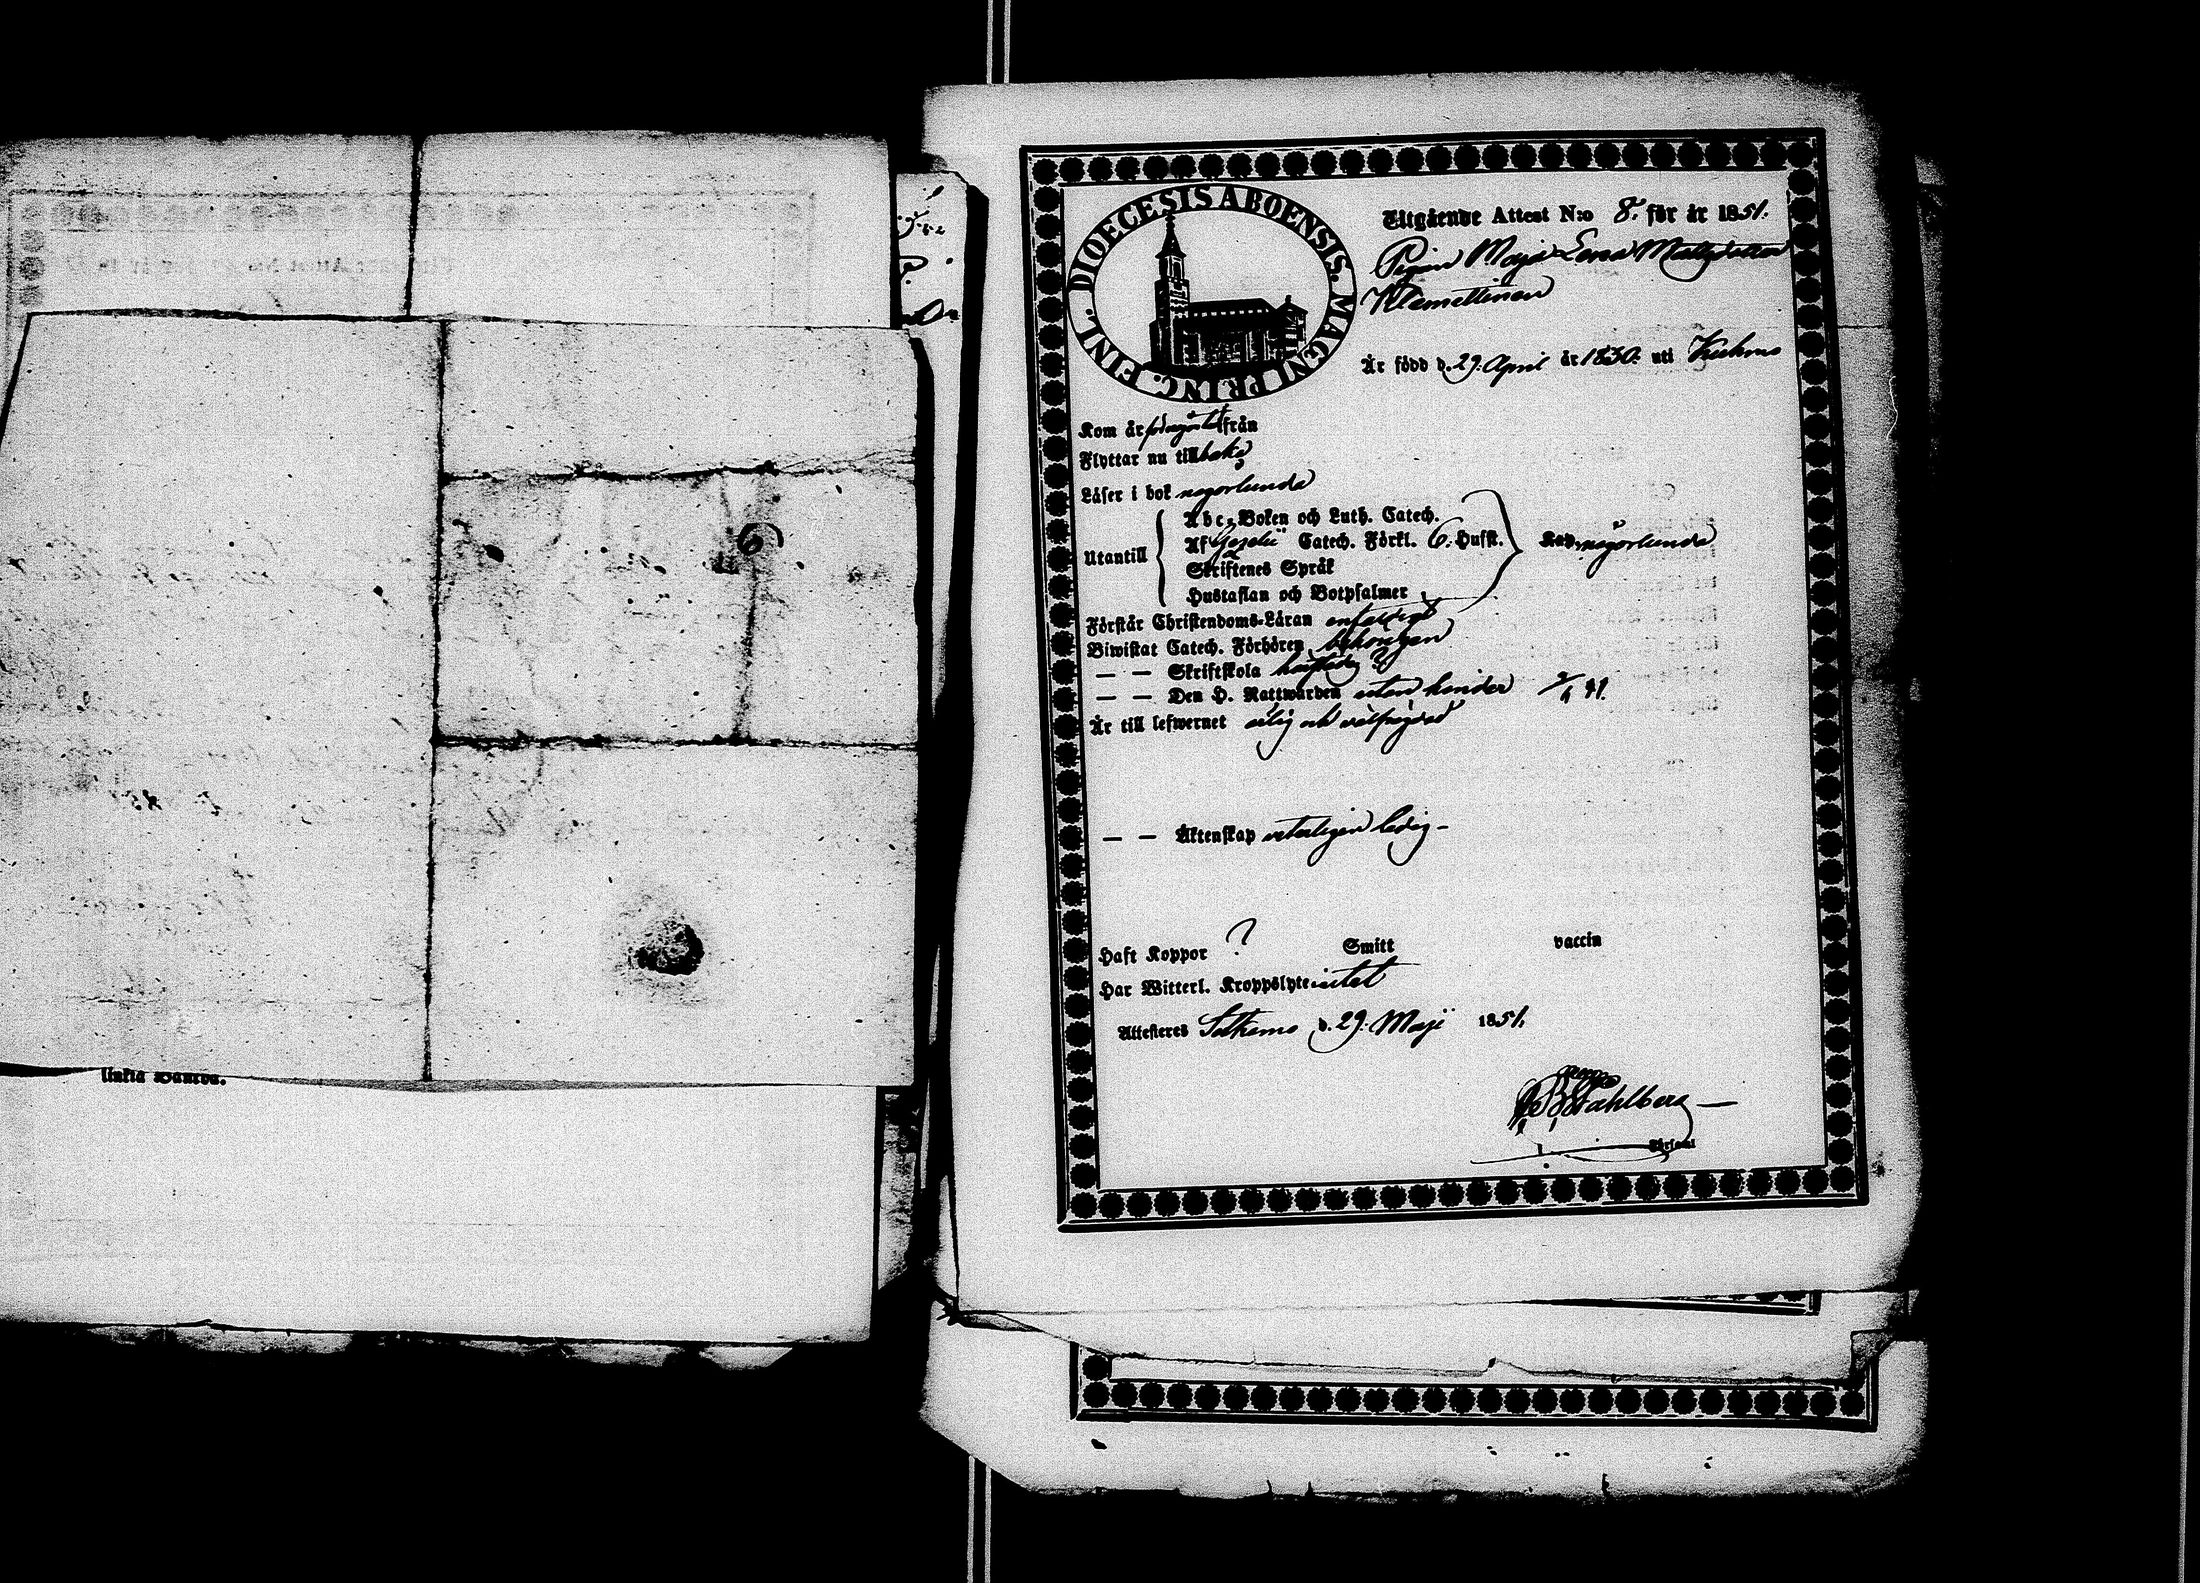 DIOECESIS ABOENSIS. MAGNI PRINC. FINL.
Utgående Attest N:o 8. för år 1851.
Pigan Maja Lena Mattsdotter
Klemettinen
Är född d. 29. April år 1830. uti Kuhmo
Kom år från
Flyttar nu tillbaka
Läser i bok någorlunda
Utantill
Abc-Boken och Luth. Catech.
Af Gezelii Catech. Förkl. 6. Hufst.
Skriftenes Språk
Hustaflan och Botpsalmer
någorlunda
Förstår Christendoms-Läran enfaldigt
Biwistat Catech. Förhören behörigen
— — Skriftskola
— — Den H. Nattwarden utan hinder
Är till lefwernet ärlig och välfrägdad
— — Äktenskap veterligen ledig –
Haft Koppor ? Smitt vaccin
Har Witterl. Kroppslyte intet
Attesteres Sotkamo d. 29. Maji 1851.
Stahlberg —
linkia
6